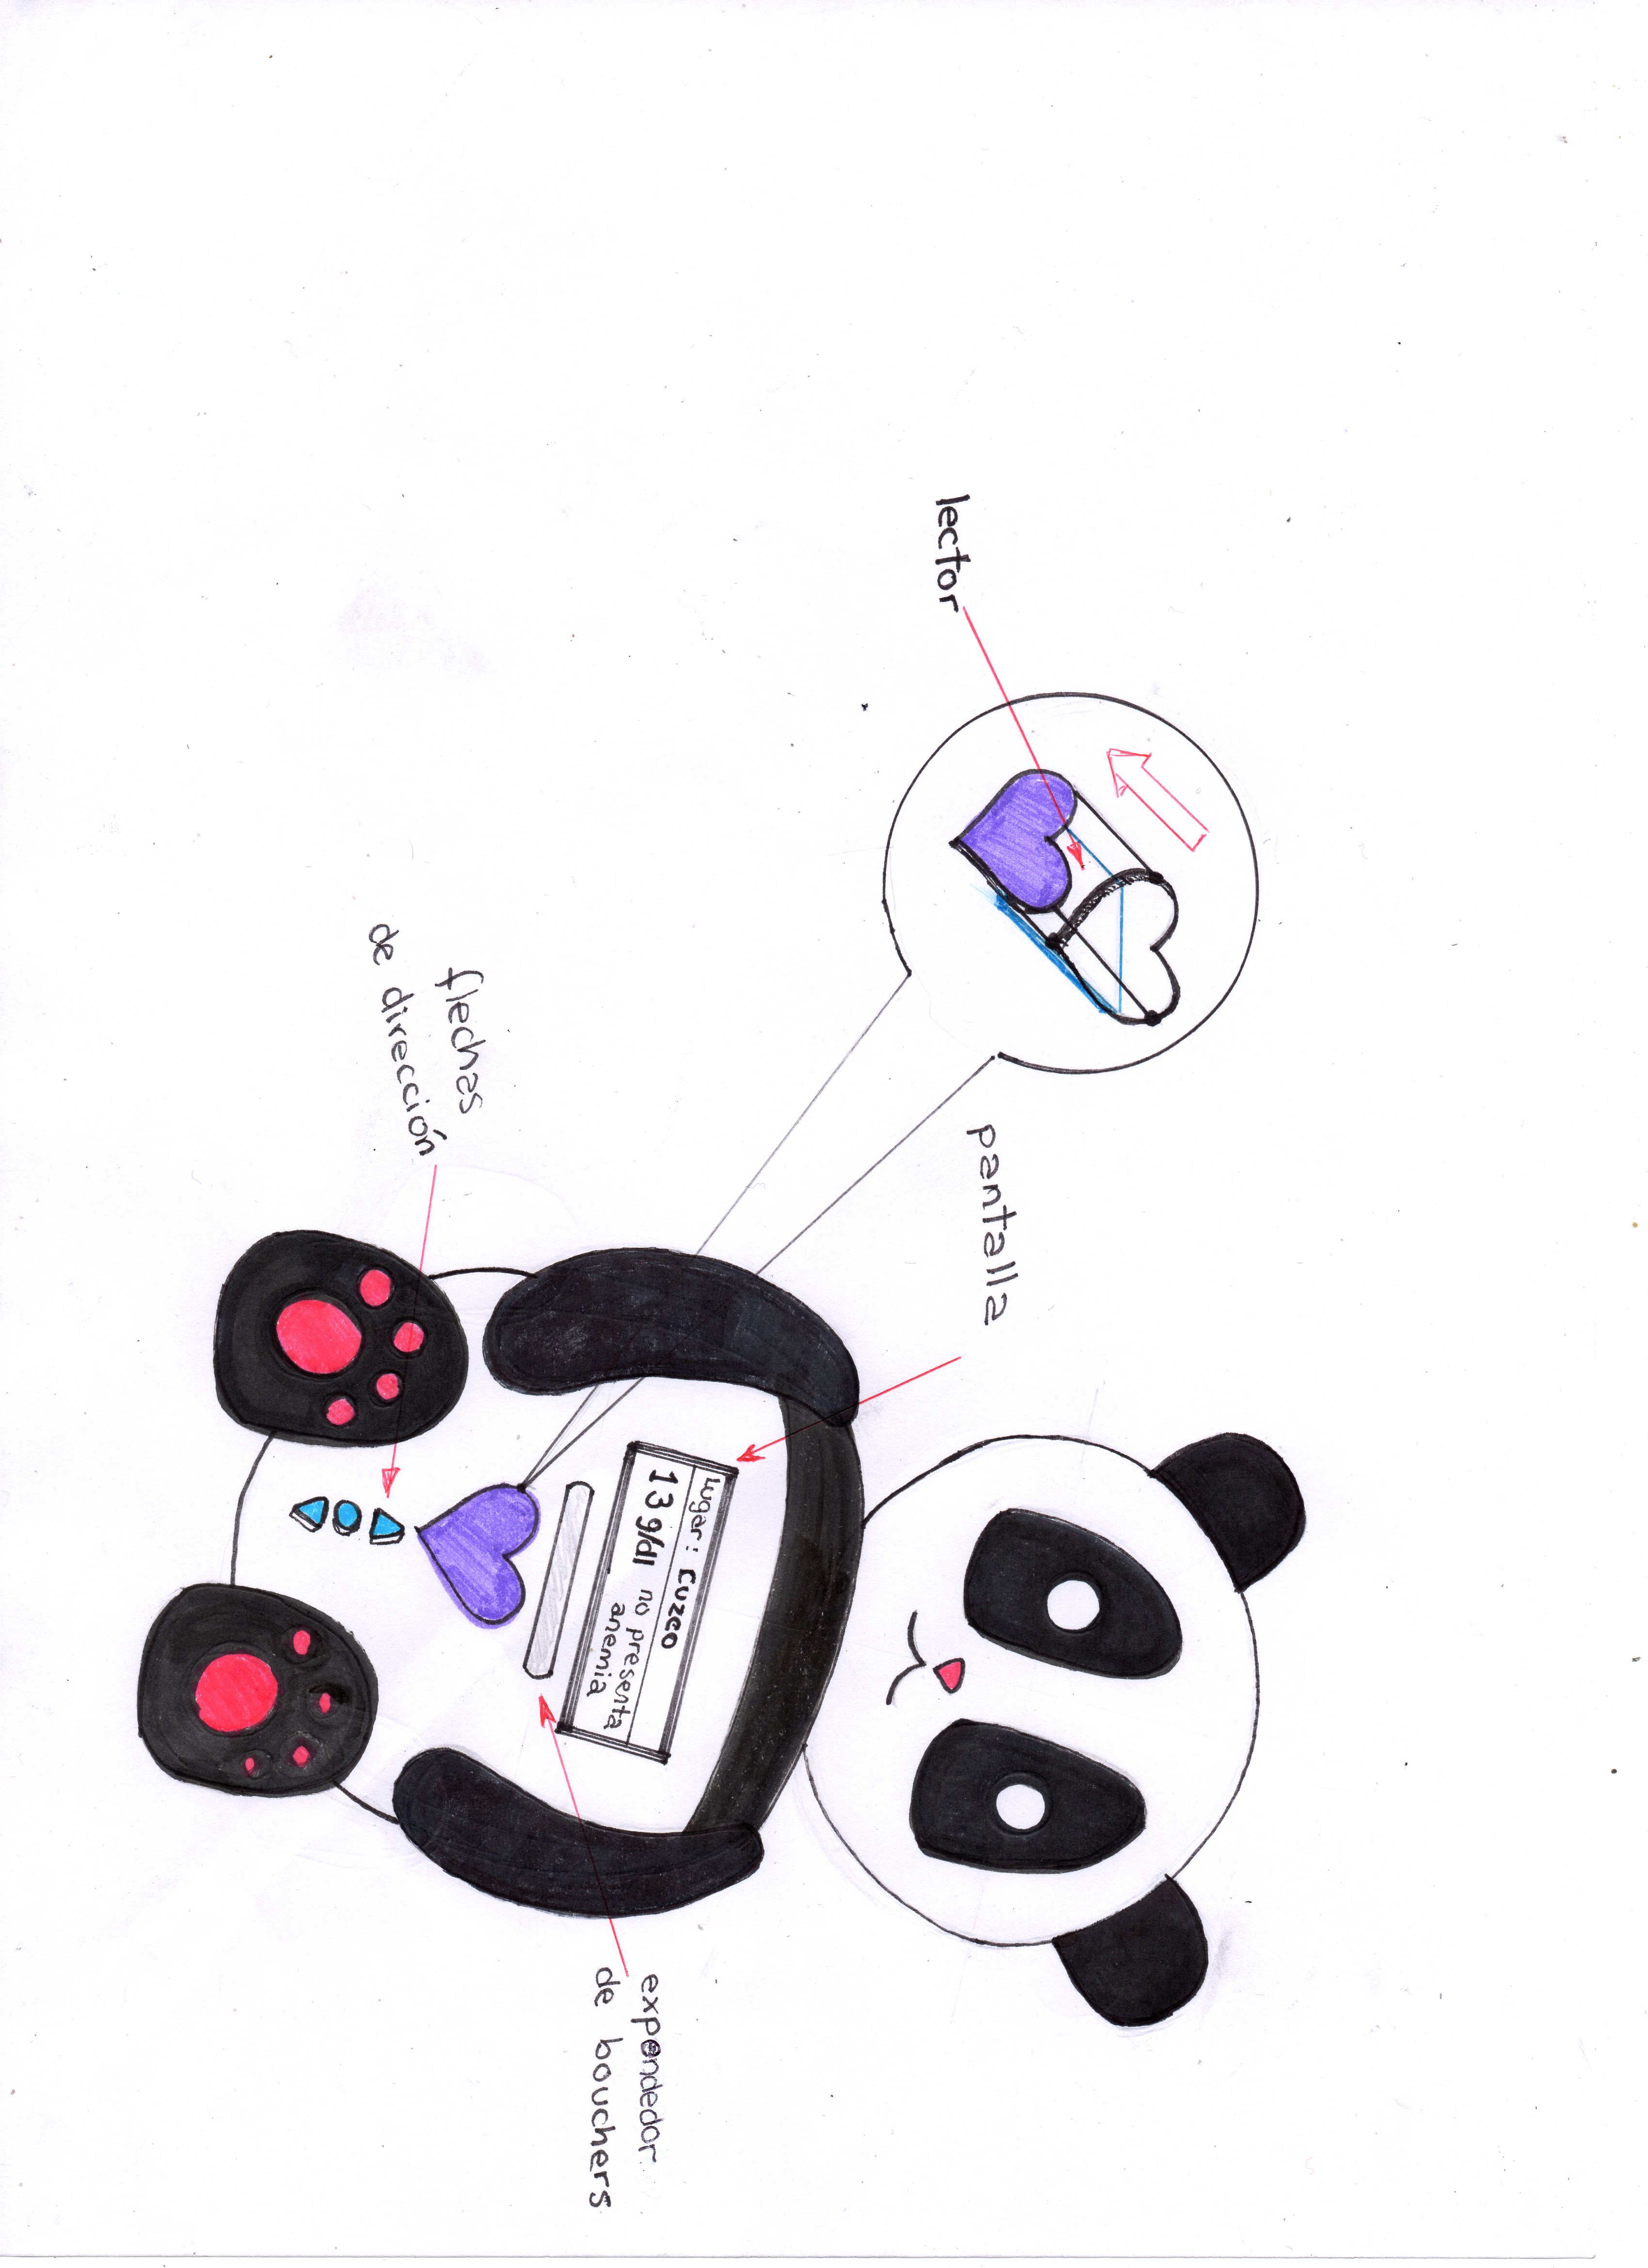 lector
pantalla
Lugar: Cuzco
13 g/dl no presenta
anemia
expendedor
de bouchers
flechas
de dirección